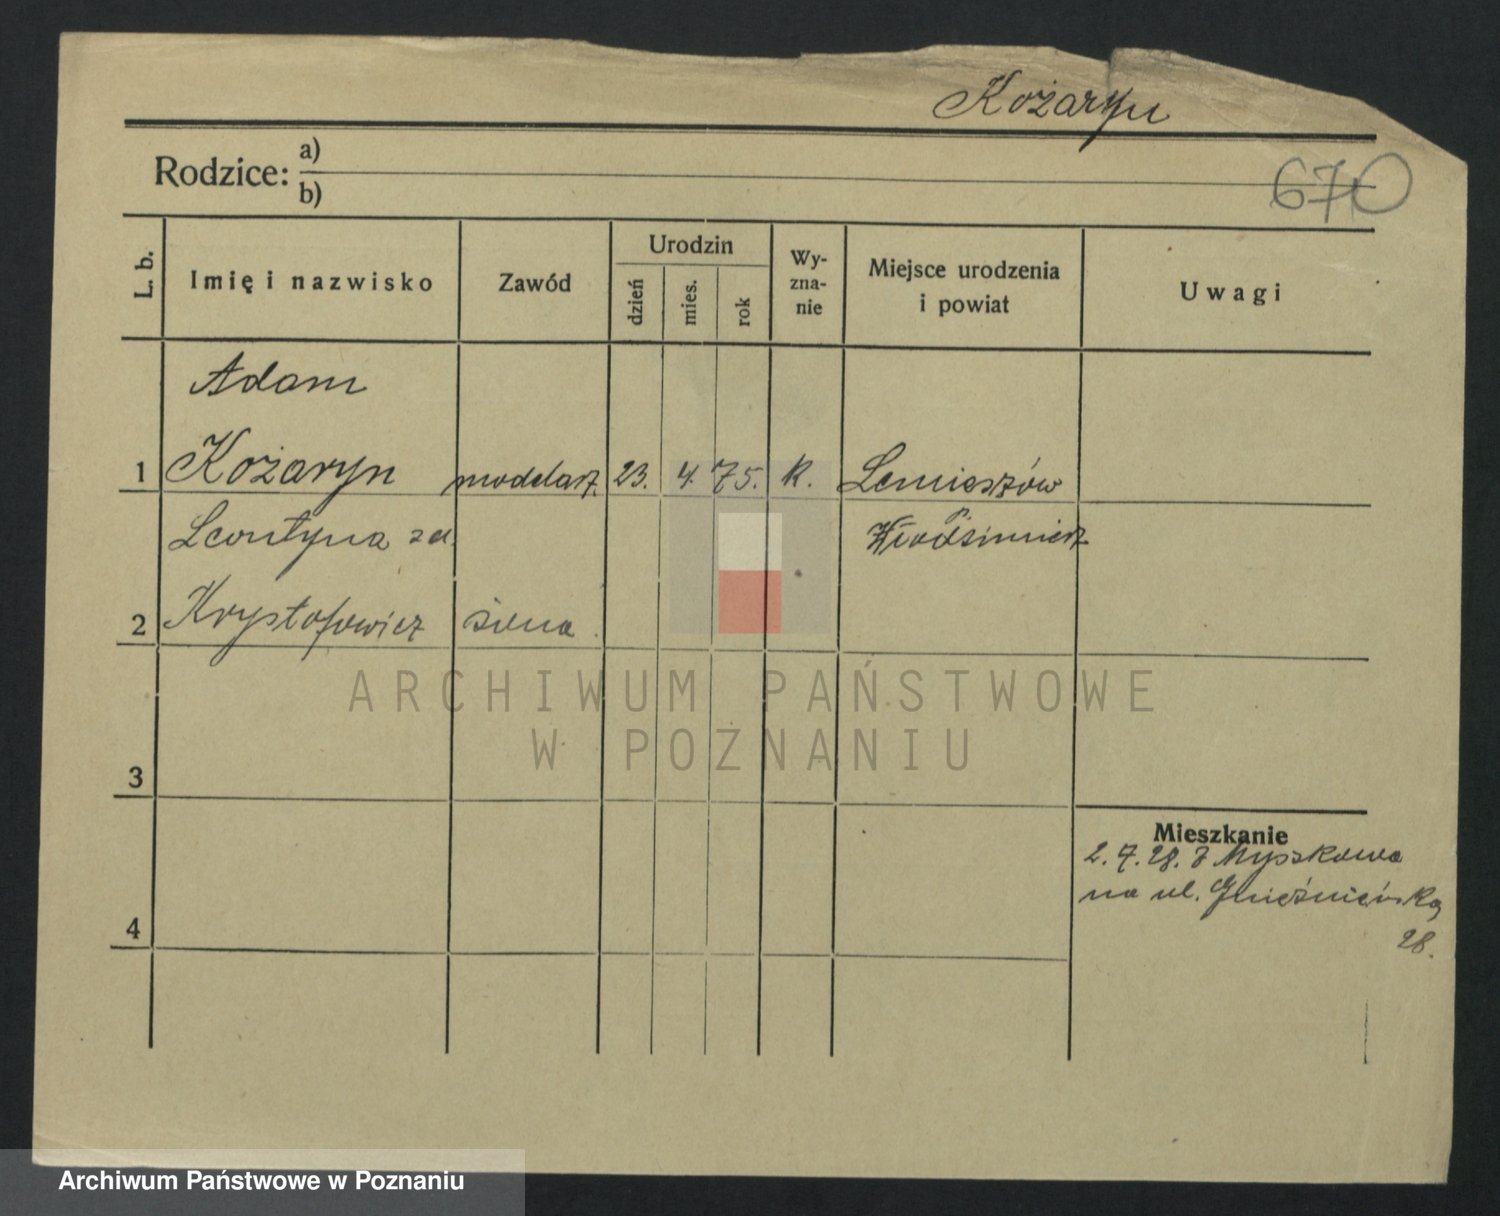 Kożaryn
Rodzice: a)
b)
670
L. b.
Imię i nazwisko
Zawód
Urodzin
dzień
mies.
rok
Wy-
zna-
nie
Miejsce urodzenia
i powiat
Uwagi
Adam
1 Kożaryn modelarz. 23. 4. 75. k. Lemieszów
Leontyna zd.
p. Włodzimierz
2 Krystofowicz żona
ARCHIWUM PAŃSTWOWE
W POZNANIU
3
Mieszkanie
2. 7. 28. z Myszkowa
na ul. Gnieźnieńską
28.
4
Archiwum Państwowe w Poznaniu